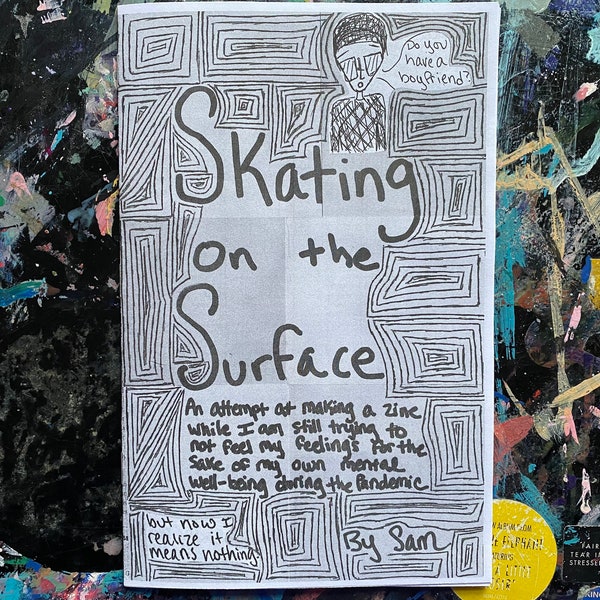 Do you
have a
boyfriend?
Skating
on the
Surface
An attempt at making a zine
while I am still trying to
not feel my feelings for the
sake of my own mental
well-being during the Pandemic
but now I
realize it
means nothing
By Sam
ALBUM FROM
A LITTLE
FAIR
TEAR IN
STRESSED
KING